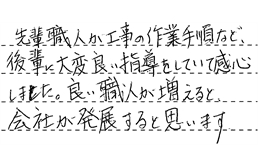 先輩職人が工事の作業手順など、
後輩に大変良い指導をしていて感心
しました。良い職人が増えると、
会社が発展すると思います